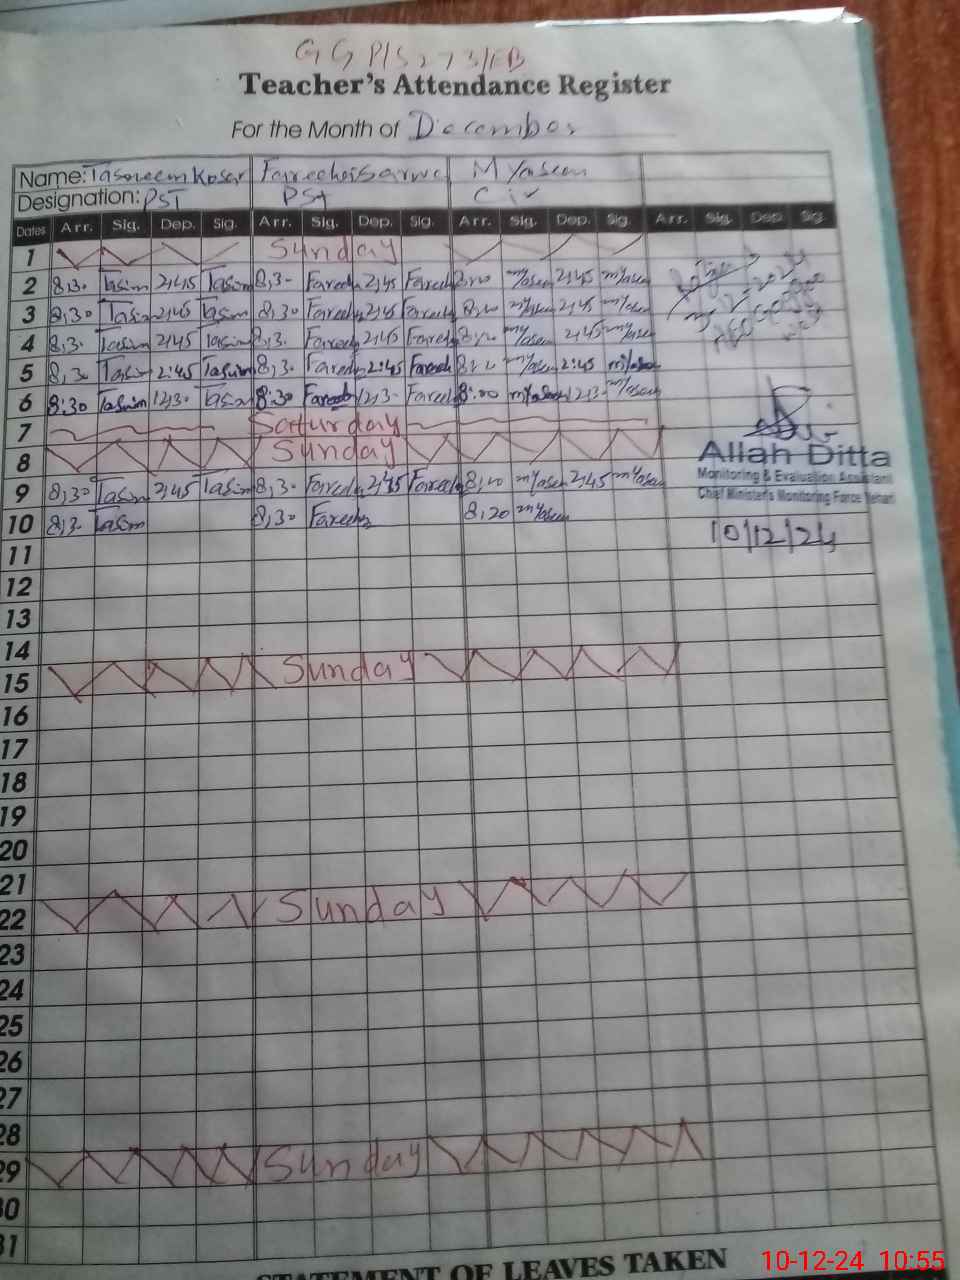 GGP/S 273/EB
Teacher's Attendance Register
For the Month of December
Name: Tasneem Kosar Fareeha Sarwa M Yaseen
Designation: PST PST Civ
Dates Arr. Sig. Dep. Sig. Arr. Sig. Dep. Sig. Arr. Sig. Dep. Sig. Arr. Sig. Dep. Sig.
1 Sunday
2 8,30 Tasim 2,45 Tasim 8,30 Fareeh 2,45 Fareeh 8,20 M/Yasen 2,45 M/Yasen
3 8,30 Tasim 2,45 Tasim 8,30 Fareeh 2,45 Fareeh 8,20 M/Yasen 2,45 M/Yasen
4 8,30 Tasim 2,45 Tasim 8,30 Fareeh 2,45 Fareeh 8,20 M/Yasen 2,45 M/Yasen
5 8,30 Tasim 2:45 Tasim 8,30 Fareeh 2:45 Fareeh 8,20 M/Yasen 2:45 M/Yasen
6 8:30 Tasim 12,30 Tasim 8:30 Fareeh 12,30 Fareeh 8:00 M/Yasen 12,30 M/Yasen
7 Saturday
8 Sunday
Allah Ditta
Monitoring & Evaluation Assistant
Chief Minister's Monitoring Force Vehari
9 8,30 Tasim 2,45 Tasim 8,30 Fareeh 2,45 Fareeh 8,20 M/Yasen 2,45 M/Yasen
10 8,30 Tasim 8,30 Fareeh 8,20 M/Yasen
10/12/24
11
12
13
14
15 Sunday
16
17
18
19
20
21
22 Sunday
23
24
25
26
27
28
29 Sunday
30
31
STATEMENT OF LEAVES TAKEN
10-12-24 10:55